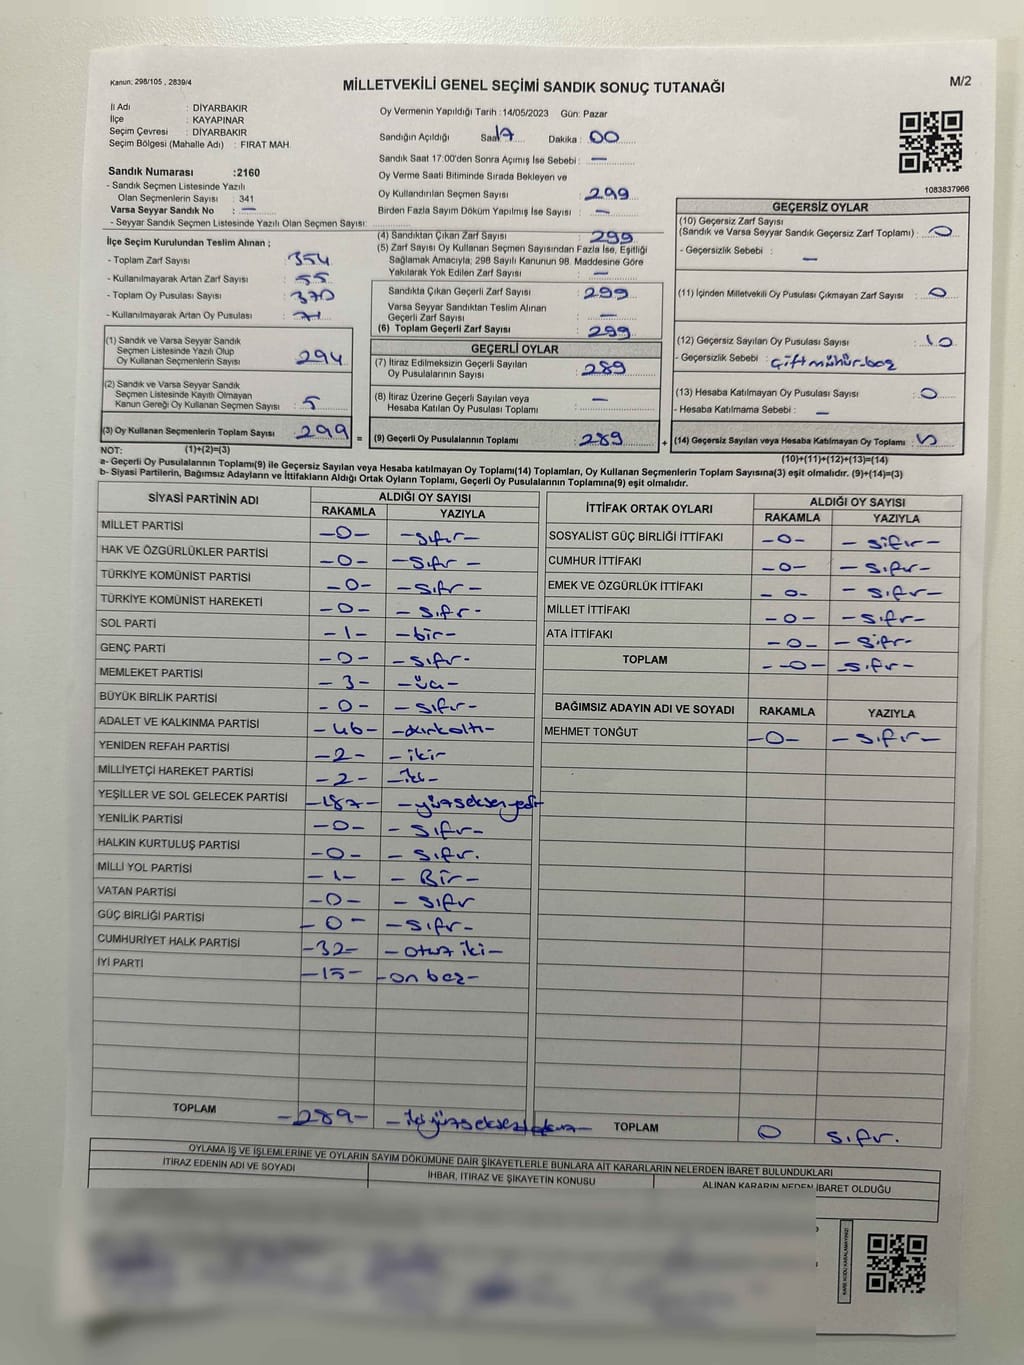 Kanun: 298/105 , 2839/4
MİLLETVEKİLİ GENEL SEÇİMİ SANDIK SONUÇ TUTANAĞI
M/2
İl Adı : DİYARBAKIR
İlçe : KAYAPINAR
Seçim Çevresi : DİYARBAKIR
Seçim Bölgesi (Mahalle Adı) : FIRAT MAH.
Sandık Numarası :2160
- Sandık Seçmen Listesinde Yazılı
Olan Seçmenlerin Sayısı : 341
Varsa Seyyar Sandık No : —
- Seyyar Sandık Seçmen Listesinde Yazılı Olan Seçmen Sayısı:
İlçe Seçim Kurulundan Teslim Alınan ;
- Toplam Zarf Sayısı : 354
- Kullanılmayarak Artan Zarf Sayısı : 55
- Toplam Oy Pusulası Sayısı : 370
- Kullanılmayarak Artan Oy Pusulası : 71
(1) Sandık ve Varsa Seyyar Sandık
Seçmen Listesinde Yazılı Olup
Oy Kullanan Seçmenlerin Sayısı : 294
(2) Sandık ve Varsa Seyyar Sandık
Seçmen Listesinde Kayıtlı Olmayan
Kanun Gereği Oy Kullanan Seçmen Sayısı : 5
(3) Oy Kullanan Seçmenlerin Toplam Sayısı : 299
(1)+(2)=(3)
Oy Vermenin Yapıldığı Tarih : 14/05/2023 Gün: Pazar
Sandığın Açıldığı Saat 17 Dakika : 00
Sandık Saat 17:00'den Sonra Açımış İse Sebebi : —
Oy Verme Saati Bitiminde Sırada Bekleyen ve
Oy Kullandırılan Seçmen Sayısı : 299
Birden Fazla Sayım Döküm Yapılmış İse Sayısı : —
(4) Sandıktan Çıkan Zarf Sayısı : 299
(5) Zarf Sayısı Oy Kullanan Seçmen Sayısından Fazla İse, Eşitliği
Sağlamak Amacıyla; 298 Sayılı Kanunun 98. Maddesine Göre
Yakılarak Yok Edilen Zarf Sayısı : —
Sandıkta Çıkan Geçerli Zarf Sayısı : 299
Varsa Seyyar Sandıktan Teslim Alınan
Geçerli Zarf Sayısı : —
(6) Toplam Geçerli Zarf Sayısı : 299
GEÇERLİ OYLAR
(7) İtiraz Edilmeksizin Geçerli Sayılan
Oy Pusulalarının Sayısı : 289
(8) İtiraz Üzerine Geçerli Sayılan veya
Hesaba Katılan Oy Pusulası Toplamı : —
= (9) Geçerli Oy Pusulalarının Toplamı : 289 +
1083837966
GEÇERSİZ OYLAR
(10) Geçersiz Zarf Sayısı
(Sandık ve Varsa Seyyar Sandık Geçersiz Zarf Toplamı) : 0
- Geçersizlik Sebebi : —
(11) İçinden Milletvekili Oy Pusulası Çıkmayan Zarf Sayısı : 0
(12) Geçersiz Sayılan Oy Pusulası Sayısı : 10
- Geçersizlik Sebebi : Çift mühür-boş
(13) Hesaba Katılmayan Oy Pusulası Sayısı : 0
- Hesaba Katılmama Sebebi : —
(14) Geçersiz Sayılan veya Hesaba Katılmayan Oy Toplamı :
(10)+(11)+(12)+(13)=(14)
NOT:
a- Geçerli Oy Pusulalarının Toplamı(9) ile Geçersiz Sayılan veya Hesaba katılmayan Oy Toplamı(14) Toplamları, Oy Kullanan Seçmenlerin Toplam Sayısına(3) eşit olmalıdır. (9)+(14)=(3)
b- Siyasi Partilerin, Bağımsız Adayların ve İttifakların Aldığı Ortak Oyların Toplamı, Geçerli Oy Pusulalarının Toplamına(9) eşit olmalıdır.
SİYASİ PARTİNİN ADI ALDIĞI OY SAYISI
RAKAMLA YAZIYLA
MİLLET PARTİSİ -0- -sıfır-
HAK VE ÖZGÜRLÜKLER PARTİSİ -0- -sıfır-
TÜRKİYE KOMÜNİST PARTİSİ -0- -sıfır-
TÜRKİYE KOMÜNİST HAREKETİ -0- -sıfır-
SOL PARTİ -1- -bir-
GENÇ PARTİ -0- -sıfır-
MEMLEKET PARTİSİ -3- -üç-
BÜYÜK BİRLİK PARTİSİ -0- -sıfır-
ADALET VE KALKINMA PARTİSİ -46- -kırkaltı-
YENİDEN REFAH PARTİSİ -2- -iki-
MİLLİYETÇİ HAREKET PARTİSİ -2- -iki-
YEŞİLLER VE SOL GELECEK PARTİSİ -187- -yüzseksenyedi
YENİLİK PARTİSİ -0- -sıfır-
HALKIN KURTULUŞ PARTİSİ -0- -sıfır.
MİLLİ YOL PARTİSİ -1- -Bir-
VATAN PARTİSİ -0- -sıfır
GÜÇ BİRLİĞİ PARTİSİ -0- -sıfır-
CUMHURİYET HALK PARTİSİ -32- -otuz iki-
İYİ PARTİ -15- -on beş-
TOPLAM -289- -ikiyüzseksendokuz-
İTTİFAK ORTAK OYLARI ALDIĞI OY SAYISI
RAKAMLA YAZIYLA
SOSYALİST GÜÇ BİRLİĞİ İTTİFAKI -0- -sıfır-
CUMHUR İTTİFAKI -0- -sıfır-
EMEK VE ÖZGÜRLÜK İTTİFAKI -0- -sıfır-
MİLLET İTTİFAKI -0- -sıfır-
ATA İTTİFAKI -0- -sıfır-
TOPLAM -0- -sıfır-
BAĞIMSIZ ADAYIN ADI VE SOYADI RAKAMLA YAZIYLA
MEHMET TONĞUT -0- -sıfır-
TOPLAM 0 sıfır.
OYLAMA İŞ VE İŞLEMLERİNE VE OYLARIN SAYIM DÖKÜMÜNE DAİR ŞİKAYETLERLE BUNLARA AİT KARARLARIN NELERDEN İBARET BULUNDUKLARI
İTİRAZ EDENİN ADI VE SOYADI İHBAR, İTİRAZ VE ŞİKAYETİN KONUSU ALINAN KARARIN NEDEN İBARET OLDUĞU
KARE KODU KARALAMAYINIZ!